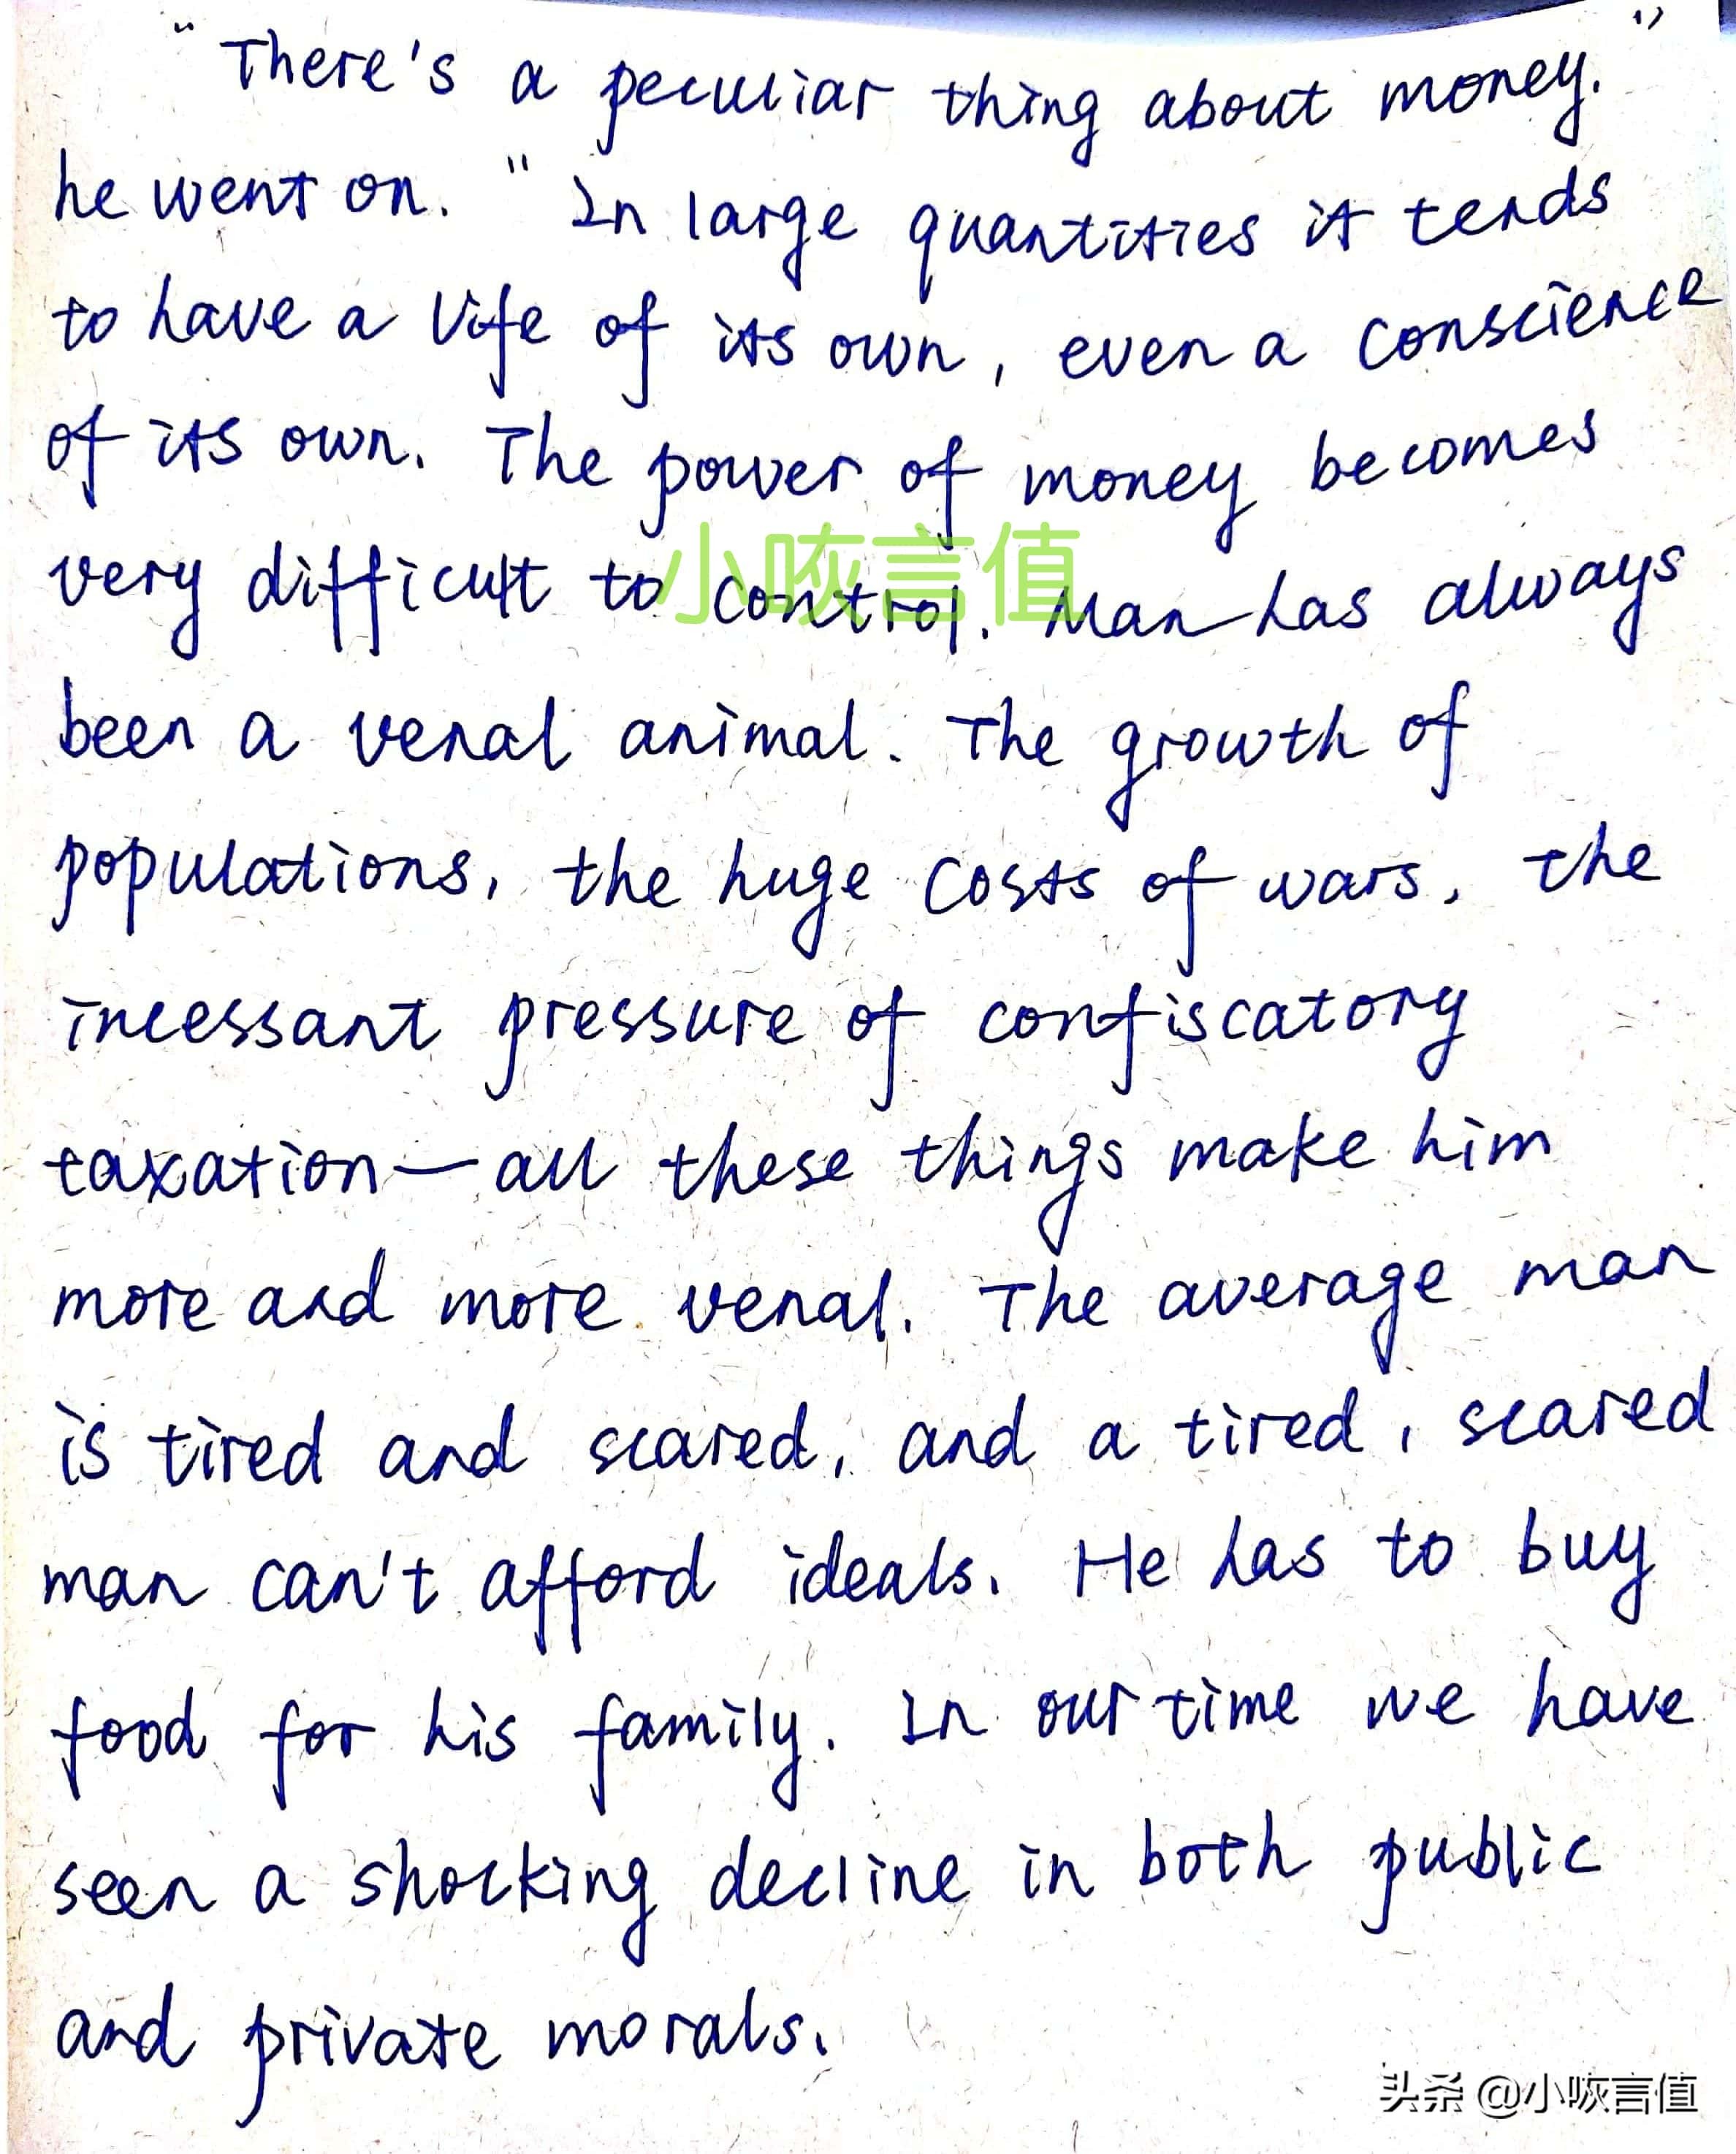 "There's a peculiar thing about money."
he went on. "In large quantities it tends
to have a life of its own, even a conscience
of its own. The power of money becomes
very difficult to control. Man has always
小咴言值
been a venal animal. The growth of
populations, the huge costs of wars, the
incessant pressure of confiscatory
taxation—all these things make him
more and more venal. The average man
is tired and scared, and a tired, scared
man can't afford ideals. He has to buy
food for his family. In our time we have
seen a shocking decline in both public
and private morals.
头条 @小咴言值